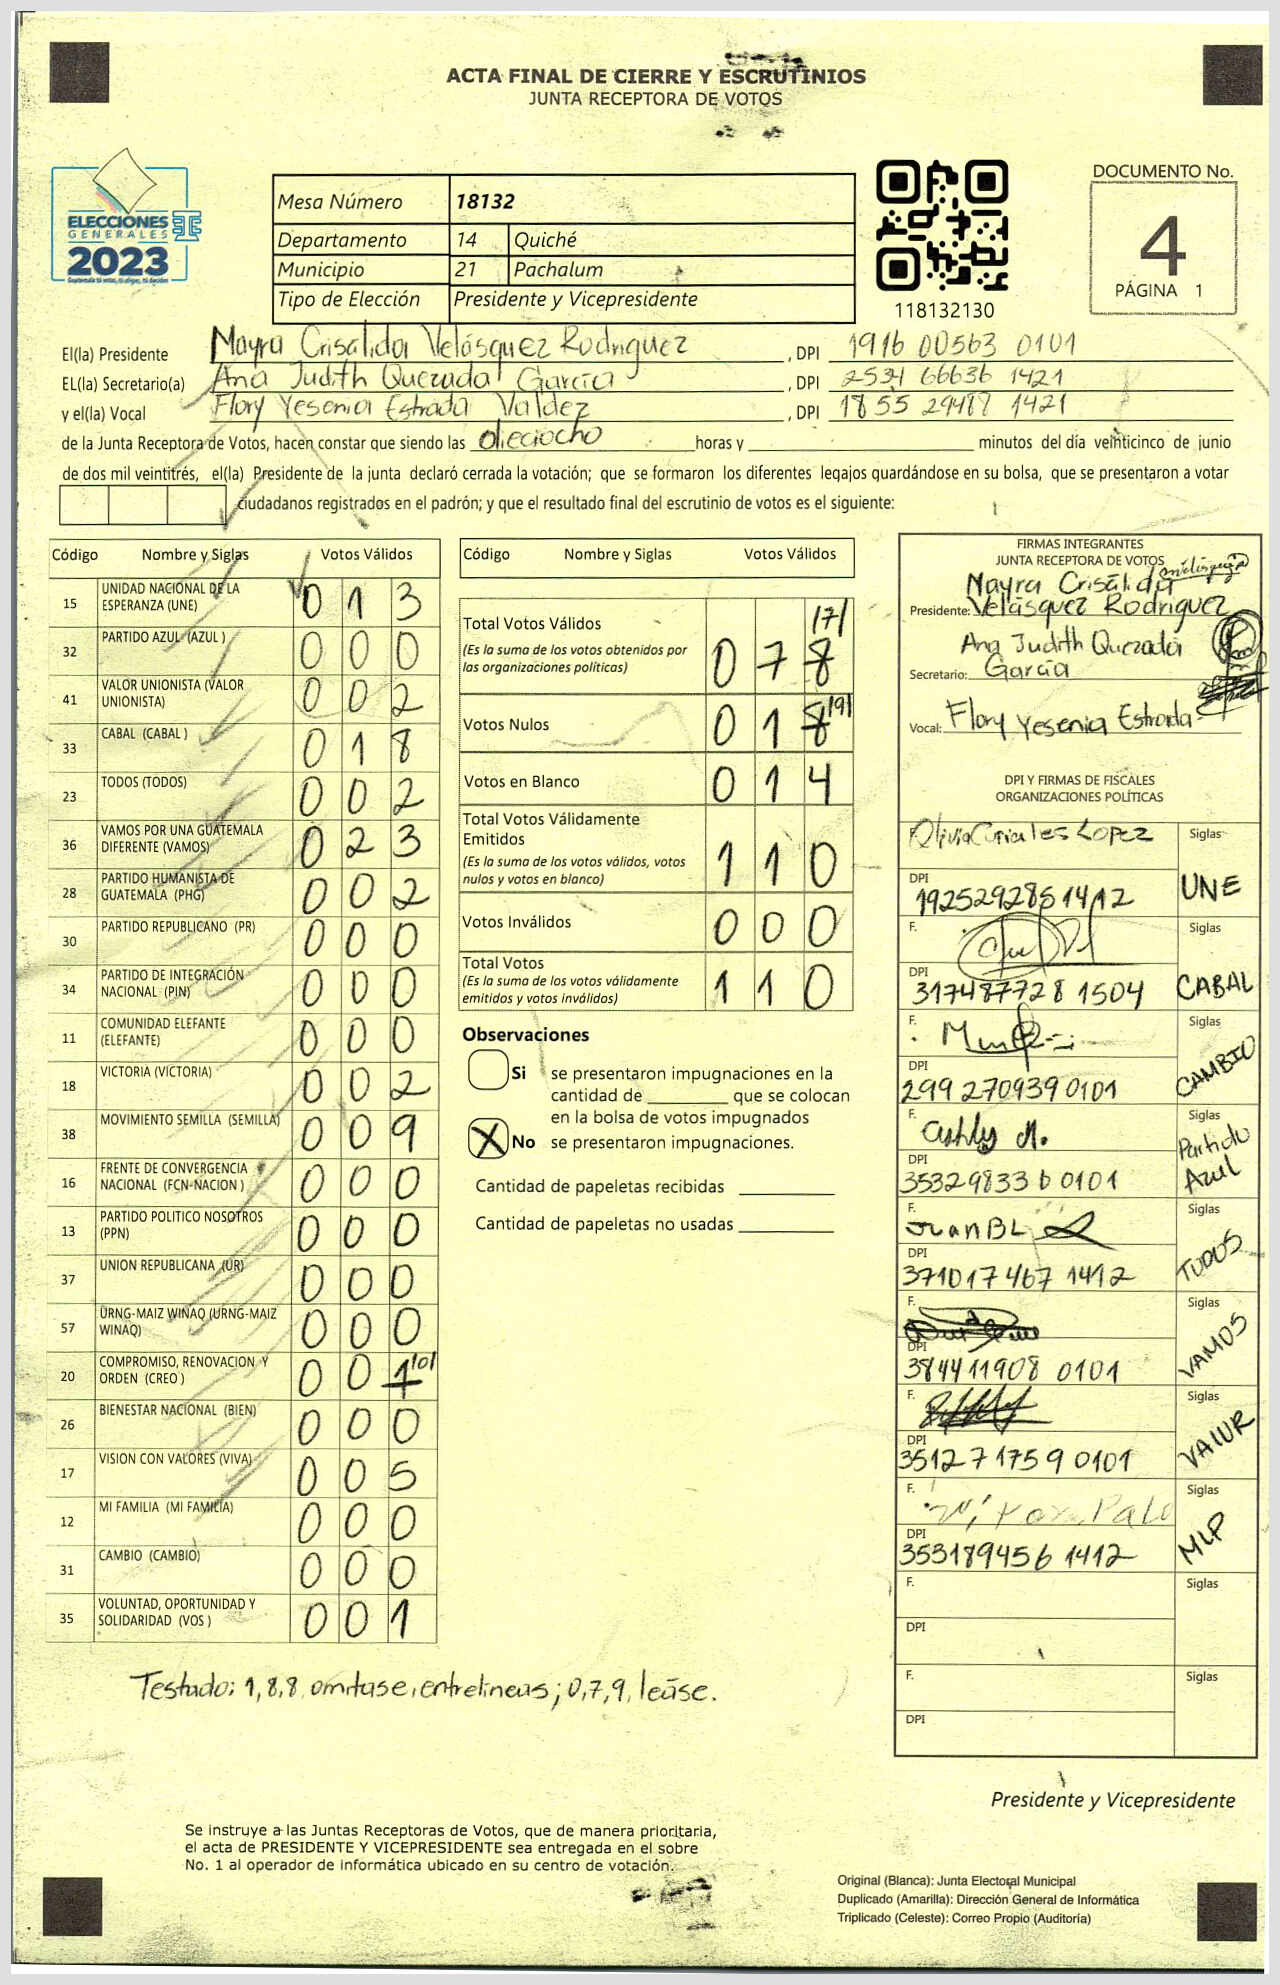 ACTA FINAL DE CIERRE Y ESCRUTINIOS
JUNTA RECEPTORA DE VOTOS
ELECCIONES
GENERALES
2023
Mesa Número 18132
Departamento 14 Quiché
Municipio 21 Pachalum
Tipo de Elección Presidente y Vicepresidente
118132130
DOCUMENTO No.
4
PÁGINA 1
El(la) Presidente Mayra Crisálida Velásquez Rodriguez, DPI 1916 00563 0101
EL(la) Secretario(a) Ana Judith Quezada García, DPI 2534 66636 1421
y el(la) Vocal Flory Yesenia Estrada Valdez, DPI 1855 29487 1421
de la Junta Receptora de Votos, hacen constar que siendo las dieciocho horas y ______ minutos del día veinticinco de junio
de dos mil veintitrés, el(la) Presidente de la junta declaró cerrada la votación; que se formaron los diferentes legajos quardándose en su bolsa, que se presentaron a votar
ciudadanos registrados en el padrón; y que el resultado final del escrutinio de votos es el siguiente:
Código Nombre y Siglas Votos Válidos
15 UNIDAD NACIONAL DE LA ESPERANZA (UNE) 0 1 3
32 PARTIDO AZUL (AZUL ) 0 0 0
41 VALOR UNIONISTA (VALOR UNIONISTA) 0 0 2
33 CABAL (CABAL ) 0 1 8
23 TODOS (TODOS) 0 0 2
36 VAMOS POR UNA GUATEMALA DIFERENTE (VAMOS) 0 2 3
28 PARTIDO HUMANISTA DE GUATEMALA (PHG) 0 0 2
30 PARTIDO REPUBLICANO (PR) 0 0 0
34 PARTIDO DE INTEGRACIÓN NACIONAL (PIN) 0 0 0
11 COMUNIDAD ELEFANTE (ELEFANTE) 0 0 0
18 VICTORIA (VICTORIA) 0 0 2
38 MOVIMIENTO SEMILLA (SEMILLA) 0 0 9
16 FRENTE DE CONVERGENCIA NACIONAL (FCN-NACION ) 0 0 0
13 PARTIDO POLITICO NOSOTROS (PPN) 0 0 0
37 UNION REPUBLICANA (UR) 0 0 0
57 URNG-MAIZ WINAQ (URNG-MAIZ WINAQ) 0 0 0
20 COMPROMISO, RENOVACION Y ORDEN (CREO ) 0 0 1 /0/
26 BIENESTAR NACIONAL (BIEN) 0 0 0
17 VISION CON VALORES (VIVA) 0 0 5
12 MI FAMILIA (MI FAMILIA) 0 0 0
31 CAMBIO (CAMBIO) 0 0 0
35 VOLUNTAD, OPORTUNIDAD Y SOLIDARIDAD (VOS ) 0 0 1
Testado: 1,8,8 omitase, entrelineas; 0,7,9, leáse.
Código Nombre y Siglas Votos Válidos
Total Votos Válidos
(Es la suma de los votos obtenidos por
las organizaciones políticas) 0 7 8 /7/
Votos Nulos 0 1 8 /9/
Votos en Blanco 0 1 4
Total Votos Válidamente
Emitidos
(Es la suma de los votos válidos, votos
nulos y votos en blanco) 1 1 0
Votos Inválidos 0 0 0
Total Votos
(Es la suma de los votos válidamente
emitidos y votos inválidos) 1 1 0
Observaciones
Si se presentaron impugnaciones en la
cantidad de ______ que se colocan
en la bolsa de votos impugnados
X No se presentaron impugnaciones.
Cantidad de papeletas recibidas
Cantidad de papeletas no usadas
FIRMAS INTEGRANTES
JUNTA RECEPTORA DE VOTOS
Presidente: Mayra Crisálida
Velásquez Rodriguez
Secretario: Ana Judith Quezada
García
Vocal: Flory Yesenia Estrada
DPI Y FIRMAS DE FISCALES
ORGANIZACIONES POLÍTICAS
F. Siglas
DPI 1925292851412 UNE
F. Siglas
DPI 317487728 1504 CABAL
F. Siglas
DPI 299 270939 0101 CAMBIO
F. Siglas
DPI 353298336 0101 Partido Azul
F. Juan BL Siglas
DPI 371017467 1412 TODOS
F. Siglas
DPI 384411908 0101 VAMOS
F. Siglas
DPI 351271759 0101 VALOR
F. Siglas
DPI 353189456 1412 MLP
F. Siglas
DPI
F. Siglas
DPI
Presidente y Vicepresidente
Se instruye a las Juntas Receptoras de Votos, que de manera prioritaria,
el acta de PRESIDENTE Y VICEPRESIDENTE sea entregada en el sobre
No. 1 al operador de informática ubicado en su centro de votación.
Original (Blanca): Junta Electoral Municipal
Duplicado (Amarilla): Dirección General de Informática
Triplicado (Celeste): Correo Propio (Auditoría)